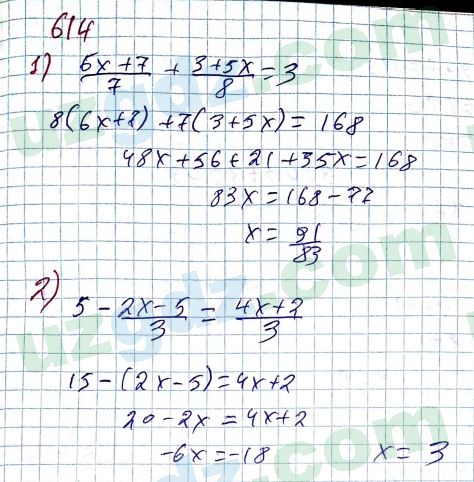 614
1) (6x+7)/7 + (3+5x)/8 = 3
8(6x+8) +7(3+5x) = 168
48x+56+21+35x=168
83x=168-77
x= 91/83
2) 5 - (2x-5)/3 = (4x+2)/3
15-(2x-5)=4x+2
20-2x=4x+2
-6x=-18 x=3
uzgdz.com
uzgdz.com